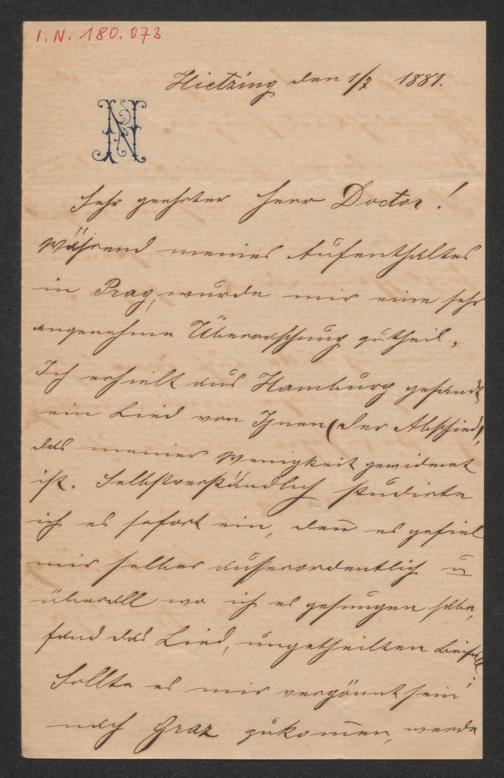 I. N. 180.073
Hietzing den 1/7 1881.
N
Sehr geehrter Herr Doctor!
Während meines Aufenthaltes
in Prag, wurde mir eine sehr
angenehme Überraschung zutheil,
Ich erhielt aus Hamburg gesandt
ein Lied von Ihnen (der Abschied),
das meiner Wenigkeit gewidmet
ist. Selbstverständlich studirte
ich es sofort ein, den̄ es gefiel
mir selber außerordentlich u
überall wo ich es gesungen habe,
fand das Lied, ungetheilten Beifall.
Sollte es mir vergönnt sein
nach Graz zukom̄en, werde